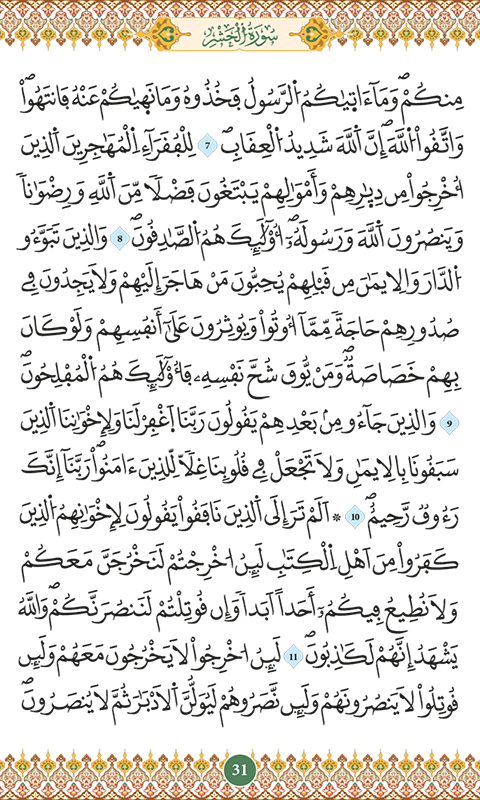 سُورَةُ الْحَشْرِ
مِنكُمْ وَمَآ ءَاتٜيٰكُمُ اُ۬لرَّسُولُ فَخُذُوهُ وَمَا نَهٜيٰكُمْ عَنْهُ فَانتَهُواْۖ
وَاتَّقُواْ اُ۬للَّهَۖ إِنَّ اَ۬للَّهَ شَدِيدُ اُ۬لْعِقَابِۖ 7 لِلْفُقَرَآءِ اِ۬لْمُهَٰجِرِينَ اَ۬لذِينَ
أُخْرِجُواْ مِن دِيٰ۪رِهِمْ وَأَمْوَٰلِهِمْ يَبْتَغُونَ فَضْلاٗ مِّنَ اَ۬للَّهِ وَرِضْوَٰناٗ
وَيَنصُرُونَ اَ۬للَّهَ وَرَسُولَهُۥٓۖ أُوْلَٰٓئِكَ هُمُ اُ۬لصَّٰدِقُونَۖ 8 وَالذِينَ تَبَوَّءُو
اُ۬لدَّارَ وَالِايمَٰنَ مِن قَبْلِهِمْ يُحِبُّونَ مَنْ هَاجَرَ إِلَيْهِمْ وَلَا يَجِدُونَ فِے
صُدُورِهِمْ حَاجَةٗ مِّمَّآ أُوتُواْ وَيُوثِرُونَ عَلَىٰٓ أَنفُسِهِمْ وَلَوْ كَانَ
بِهِمْ خَصَاصَةٞۖ وَمَنْ يُّوقَ شُحَّ نَفْسِهِۦ فَأُوْلَٰٓئِكَ هُمُ اُ۬لْمُفْلِحُونَۖ
9 وَالذِينَ جَآءُو مِنۢ بَعْدِهِمْ يَقُولُونَ رَبَّنَا اَ۪غْفِرْ لَنَا وَلِإِخْوَٰنِنَا اَ۬لذِينَ
سَبَقُونَا بِالِايمَٰنِ وَلَا تَجْعَلْ فِے قُلُوبِنَا غِلّاٗ لِّلذِينَ ءَامَنُواْ رَبَّنَآ إِنَّكَ
رَءُوفٞ رَّحِيمٌۖ 10 ۞ اَلَمْ تَرَ إِلَى اَ۬لذِينَ نَافَقُواْ يَقُولُونَ لِإِخْوَٰنِهِمُ اُ۬لذِينَ
كَفَرُواْ مِنَ اَهْلِ اِ۬لْكِتَٰبِ لَئِنُ ا۟خْرِجْتُمْ لَنَخْرُجَنَّ مَعَكُمْ
وَلَا نُطِيعُ فِيكُمُۥٓ أَحَداً اَبَداٗ وَإِن قُوتِلْتُمْ لَنَنصُرَنَّكُمْۖ وَاللَّهُ
يَشْهَدُ إِنَّهُمْ لَكَٰذِبُونَۖ 11 لَئِنُ ا۟خْرِجُواْ لَا يَخْرُجُونَ مَعَهُمْ وَلَئِن
قُوتِلُواْ لَا يَنصُرُونَهُمْ وَلَئِن نَّصَرُوهُمْ لَيُوَلُّنَّ اَ۬لَادْبَٰرَ ثُمَّ لَا يُنصَرُونَۖ
31